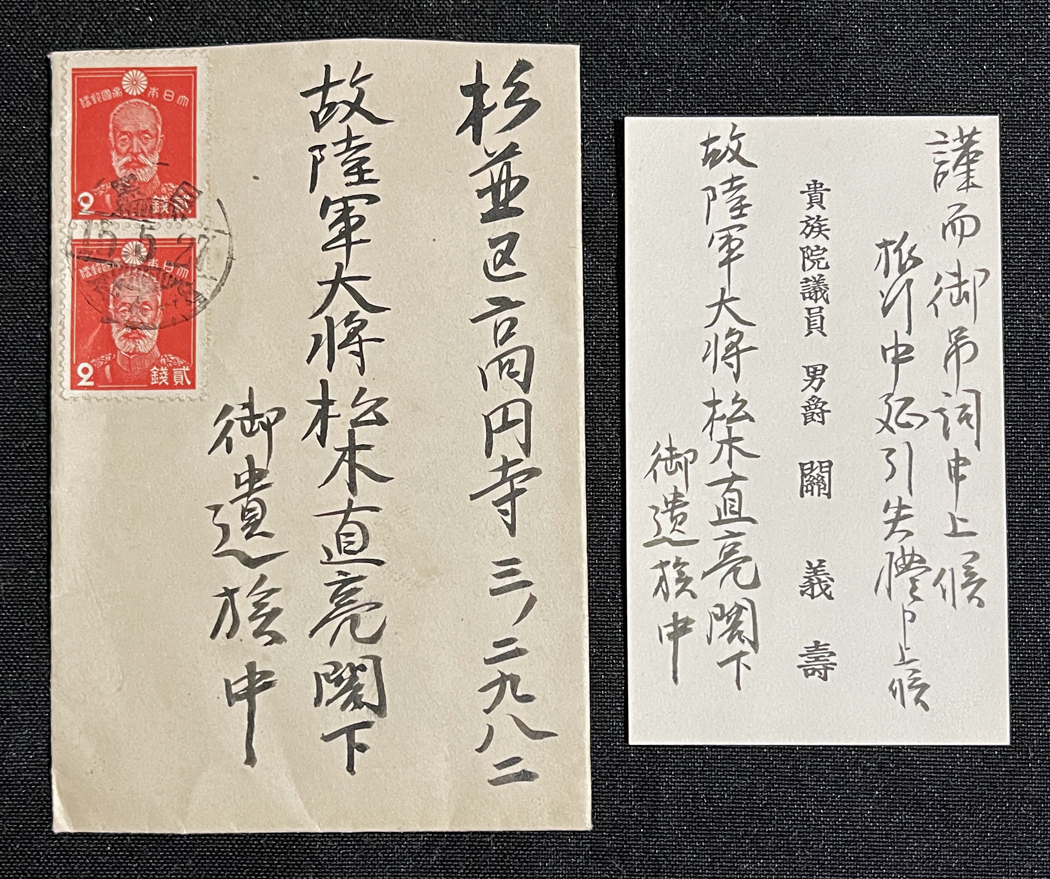 杉並区高円寺三ノ二九八二
故陸軍大将松木直亮閣下
御遺族中
大日本帝國郵便
2
貳錢
15.5.27
大日本帝國郵便
2
貳錢
謹而御弔詞申上候
旅行中延引失禮申上候
貴族院議員 男爵 關 義壽
故陸軍大将松木直亮閣下
御遺族中